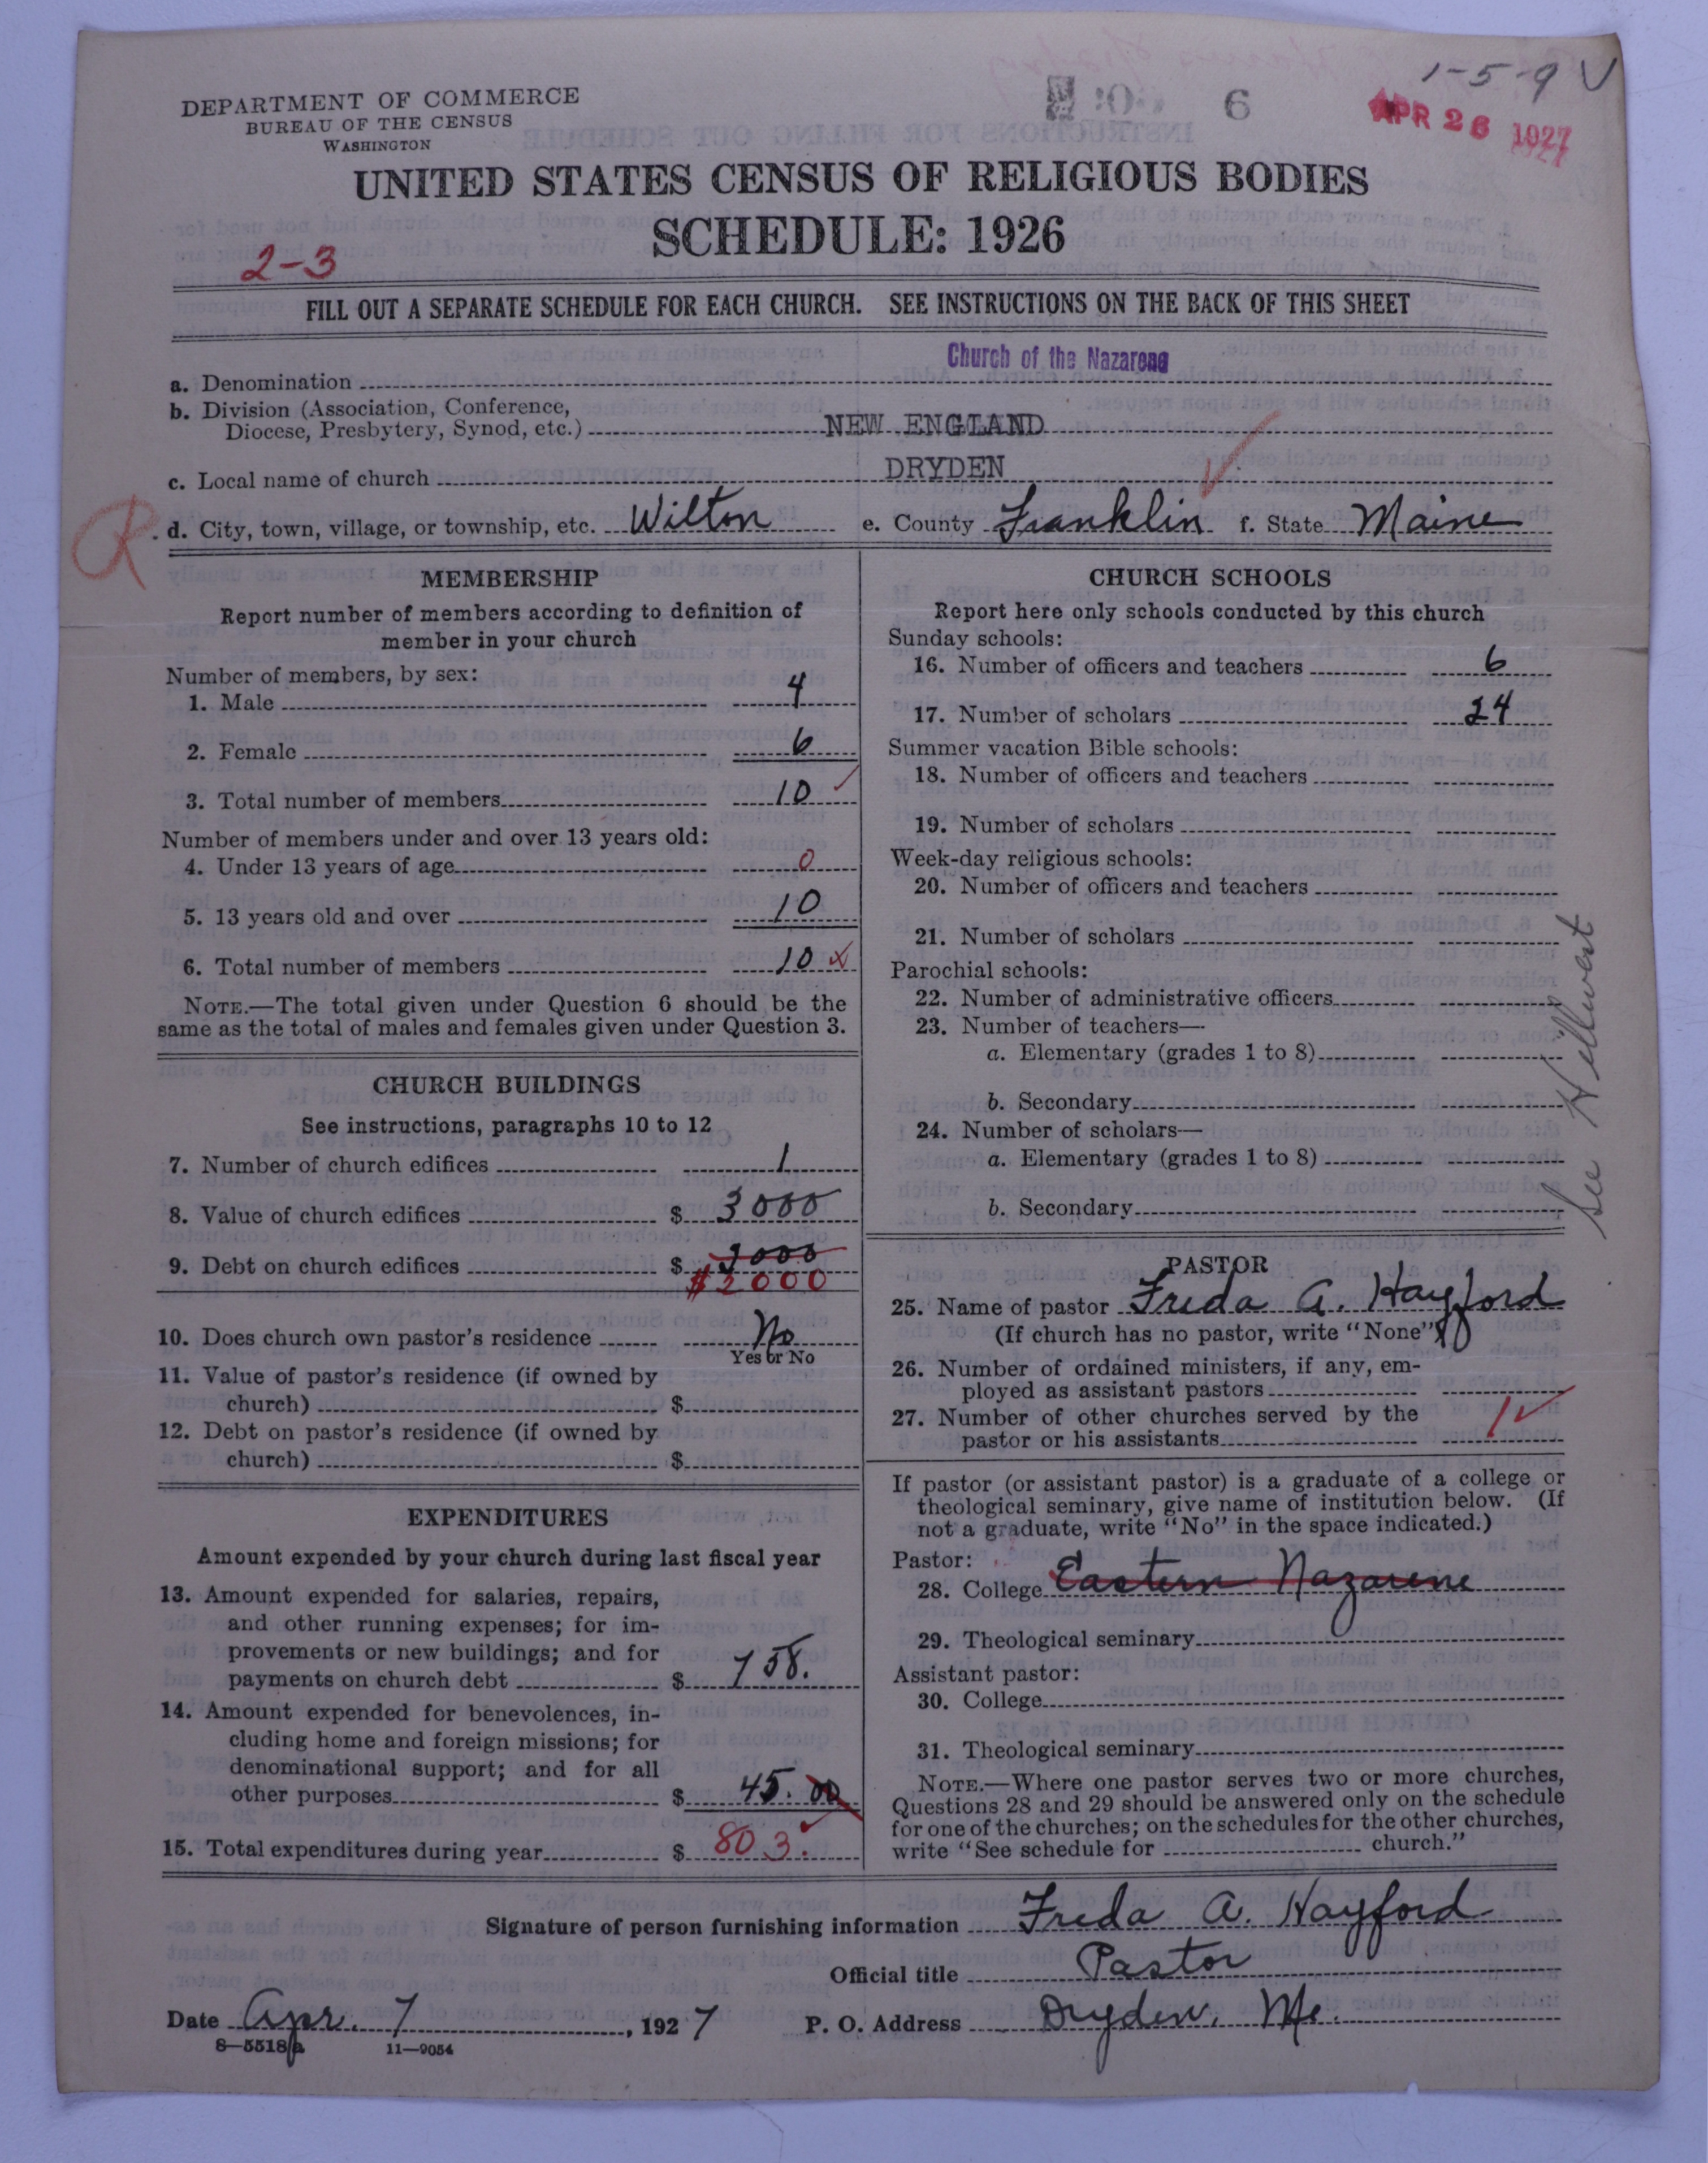 1-5-9 V
6
APR 26 1927
DEPARTMENT OF COMMERCE
BUREAU OF THE CENSUS
WASHINGTON
UNITED STATES CENSUS OF RELIGIOUS BODIES
SCHEDULE: 1926
2-3
FILL OUT A SEPARATE SCHEDULE FOR EACH CHURCH. SEE INSTRUCTIONS ON THE BACK OF THIS SHEET
a. Denomination Church of the Nazarene
b. Division (Association, Conference,
Diocese, Presbytery, Synod, etc.) NEW ENGLAND
c. Local name of church DRYDEN
R
d. City, town, village, or township, etc. Wilton e. County Franklin f. State Maine
MEMBERSHIP
Report number of members according to definition of
member in your church
Number of members, by sex:
1. Male 4
2. Female 6
3. Total number of members 10
Number of members under and over 13 years old:
4. Under 13 years of age 0
5. 13 years old and over 10
6. Total number of members 10 x
NOTE.—The total given under Question 6 should be the
same as the total of males and females given under Question 3.
CHURCH BUILDINGS
See instructions, paragraphs 10 to 12
7. Number of church edifices 1
8. Value of church edifices $ 3000
9. Debt on church edifices $ 3000
$2000
10. Does church own pastor's residence No
Yes or No
11. Value of pastor's residence (if owned by
church) $
12. Debt on pastor's residence (if owned by
church) $
EXPENDITURES
Amount expended by your church during last fiscal year
13. Amount expended for salaries, repairs,
and other running expenses; for im-
provements or new buildings; and for
payments on church debt $ 758.
14. Amount expended for benevolences, in-
cluding home and foreign missions; for
denominational support; and for all
other purposes $ 45.00
15. Total expenditures during year $ 803.
CHURCH SCHOOLS
Report here only schools conducted by this church
Sunday schools:
16. Number of officers and teachers 6
17. Number of scholars 24
Summer vacation Bible schools:
18. Number of officers and teachers
19. Number of scholars
Week-day religious schools:
20. Number of officers and teachers
21. Number of scholars
Parochial schools:
22. Number of administrative officers
23. Number of teachers—
a. Elementary (grades 1 to 8)
b. Secondary
24. Number of scholars—
a. Elementary (grades 1 to 8)
b. Secondary
See
PASTOR
25. Name of pastor Freda A. Hayford
(If church has no pastor, write "None")
26. Number of ordained ministers, if any, em-
ployed as assistant pastors
27. Number of other churches served by the
pastor or his assistants 1
If pastor (or assistant pastor) is a graduate of a college or
theological seminary, give name of institution below. (If
not a graduate, write "No" in the space indicated.)
Pastor:
28. College Eastern Nazarene
29. Theological seminary
Assistant pastor:
30. College
31. Theological seminary
NOTE.—Where one pastor serves two or more churches,
Questions 28 and 29 should be answered only on the schedule
for one of the churches; on the schedules for the other churches,
write "See schedule for church."
Signature of person furnishing information Freda A. Hayford
Official title Pastor
Date Apr. 7, 1927 P. O. Address Dryden, Me.
8—5518a 11—9054